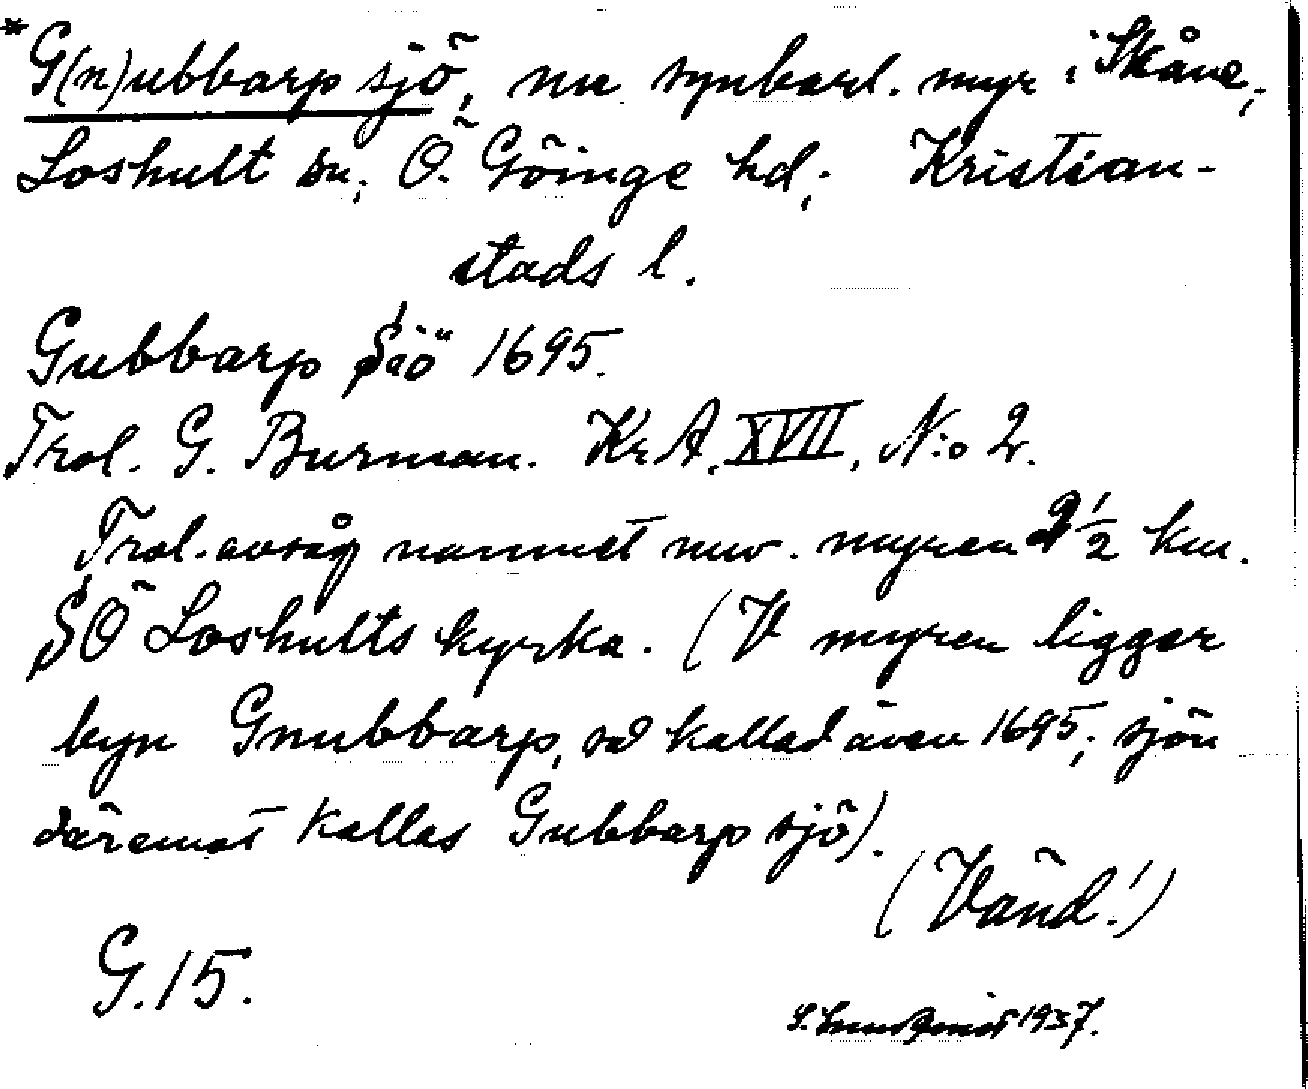 *G(n)ubbarp sjö, nu synbarl. myr i Skåne,
Loshult sn, Ö. Göinge hd, Kristian-
stads l.
Gubbarp Siö 1695.
Trol. G. Burman. KrA. XVII, N:o 2.
Trol. avsåg namnet nuv. myren 2 1/2 km.
SÖ Loshults kyrka. (V myren ligger
byn Gnubbarp, så kallad även 1695; sjön
däremot kallas Gubbarp sjö).
(Vänd!)
G.15.
S. Lundqvist 1937.